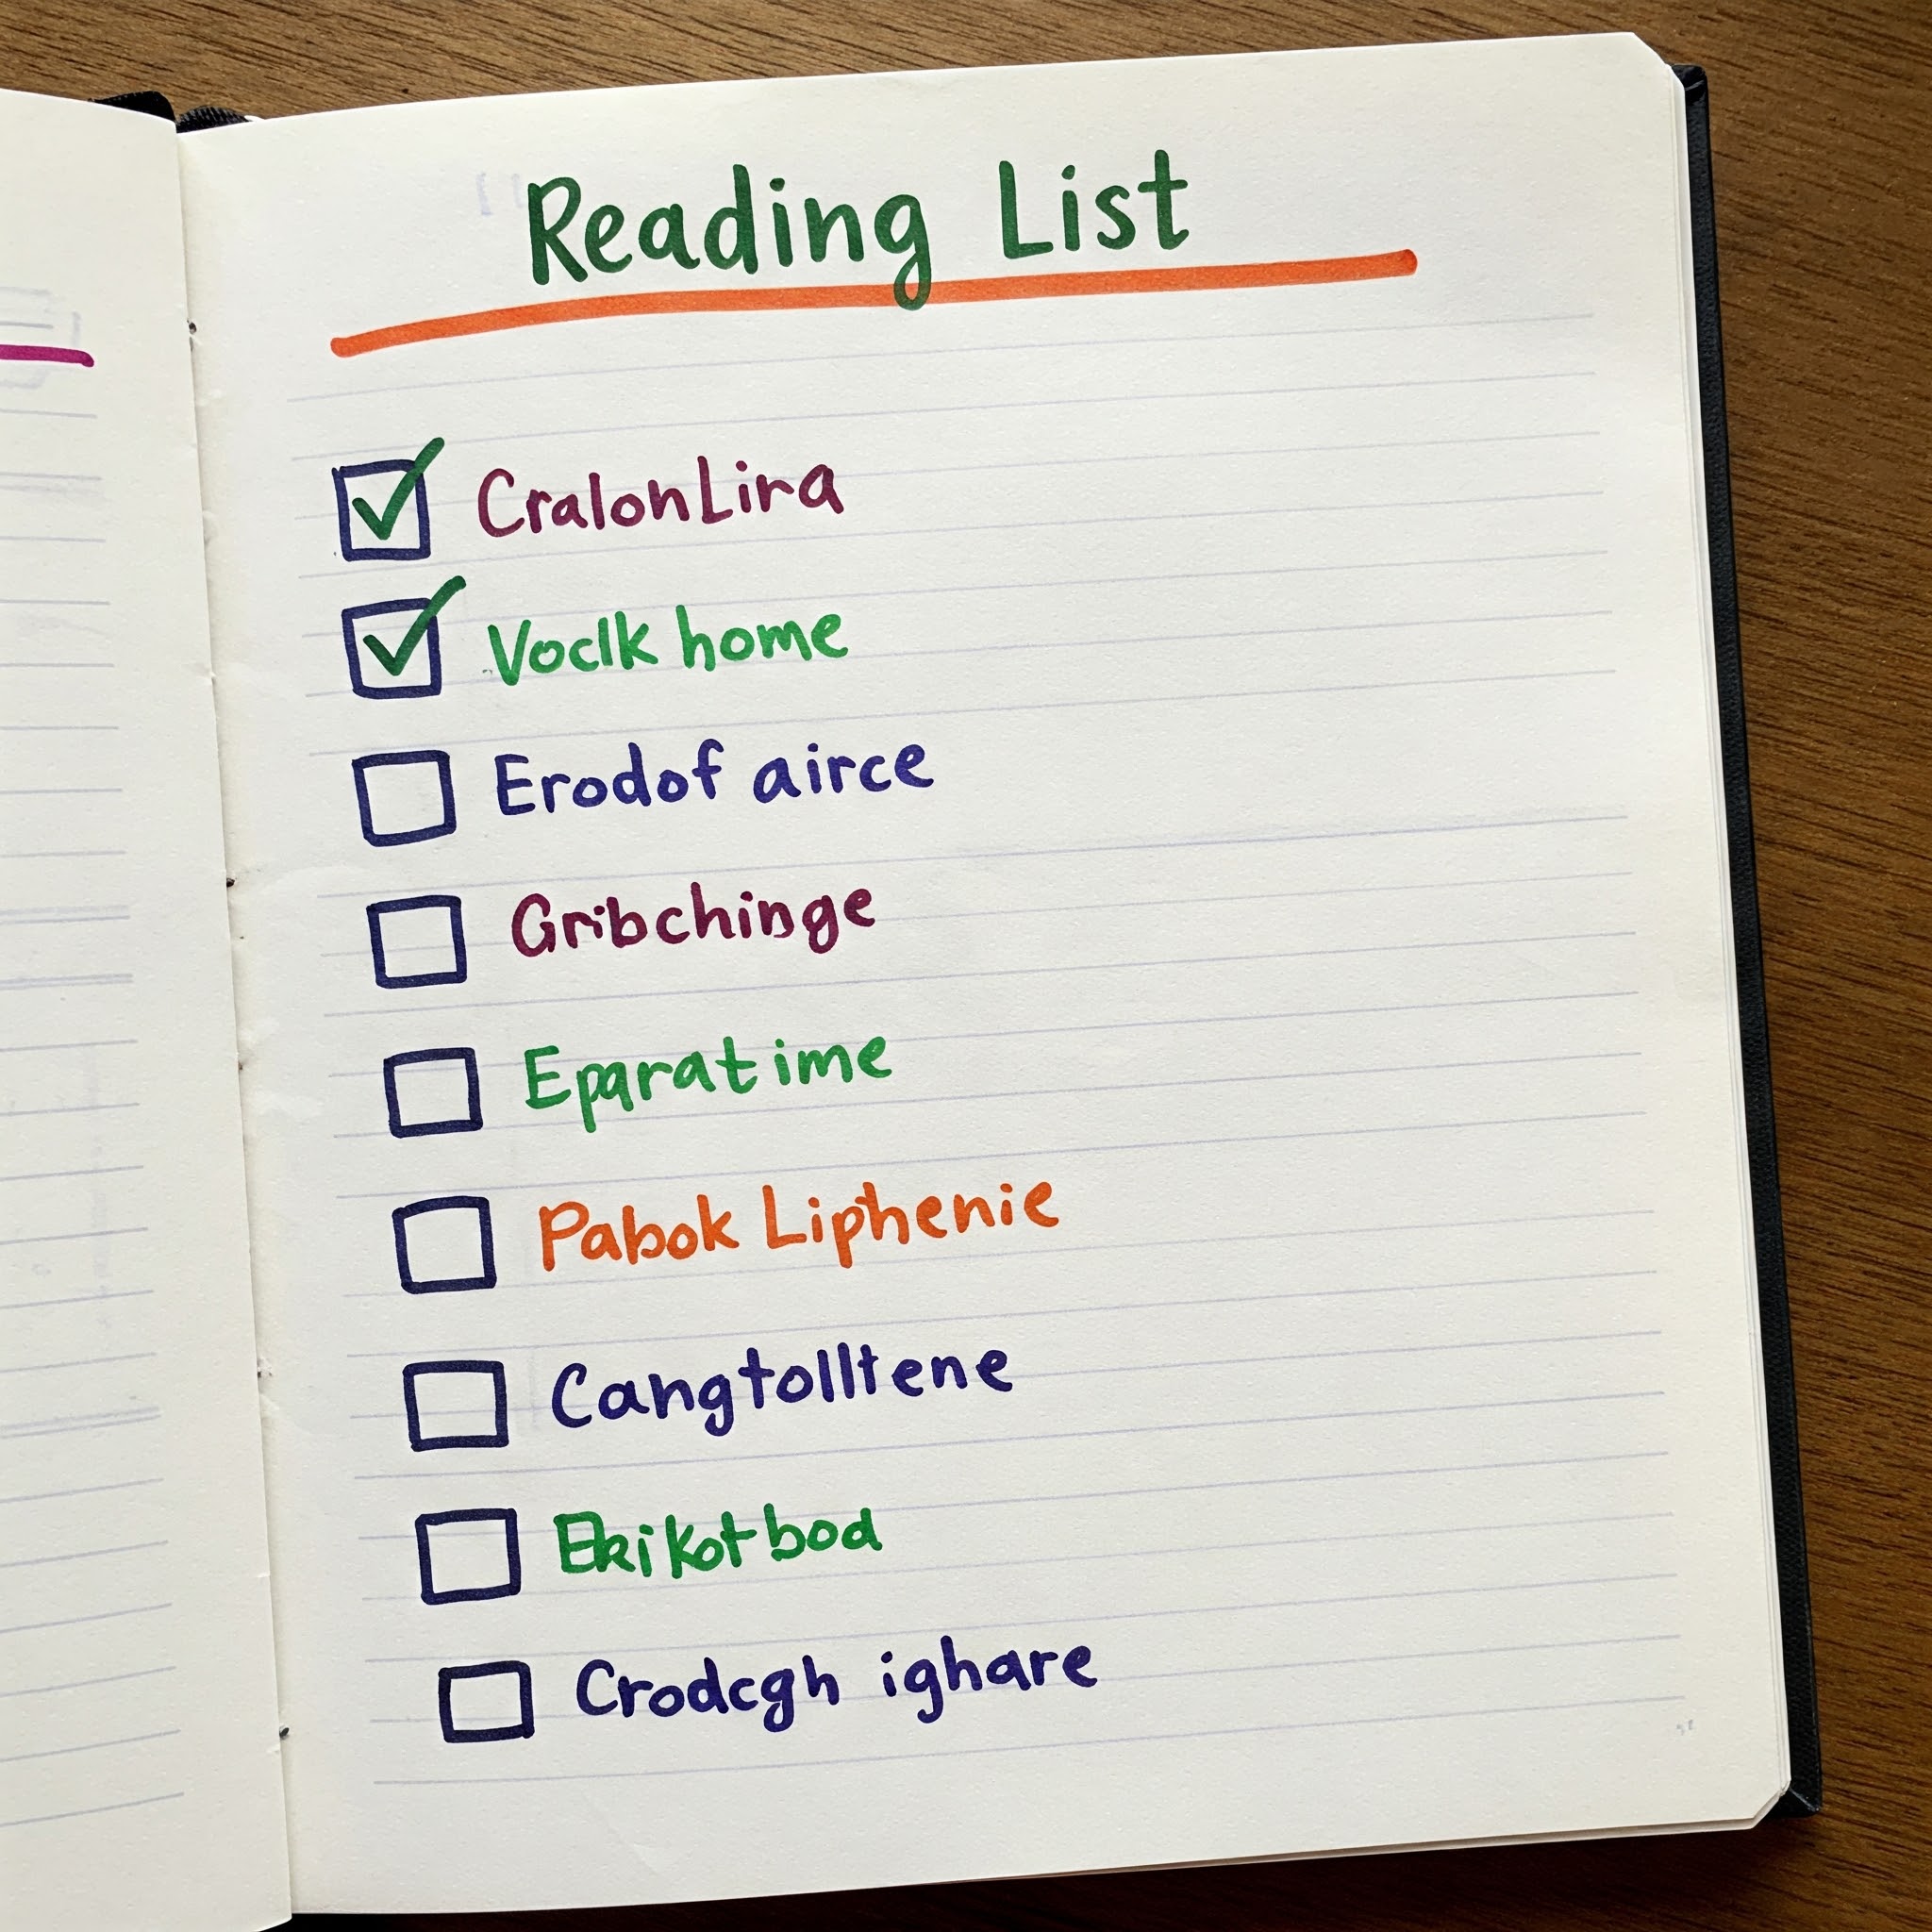 Reading List
CralonLira
Voclk home
Erodof airce
Gribchinge
Eparatime
Pabok Liphenie
Cangtolltene
Crodcgh ighare